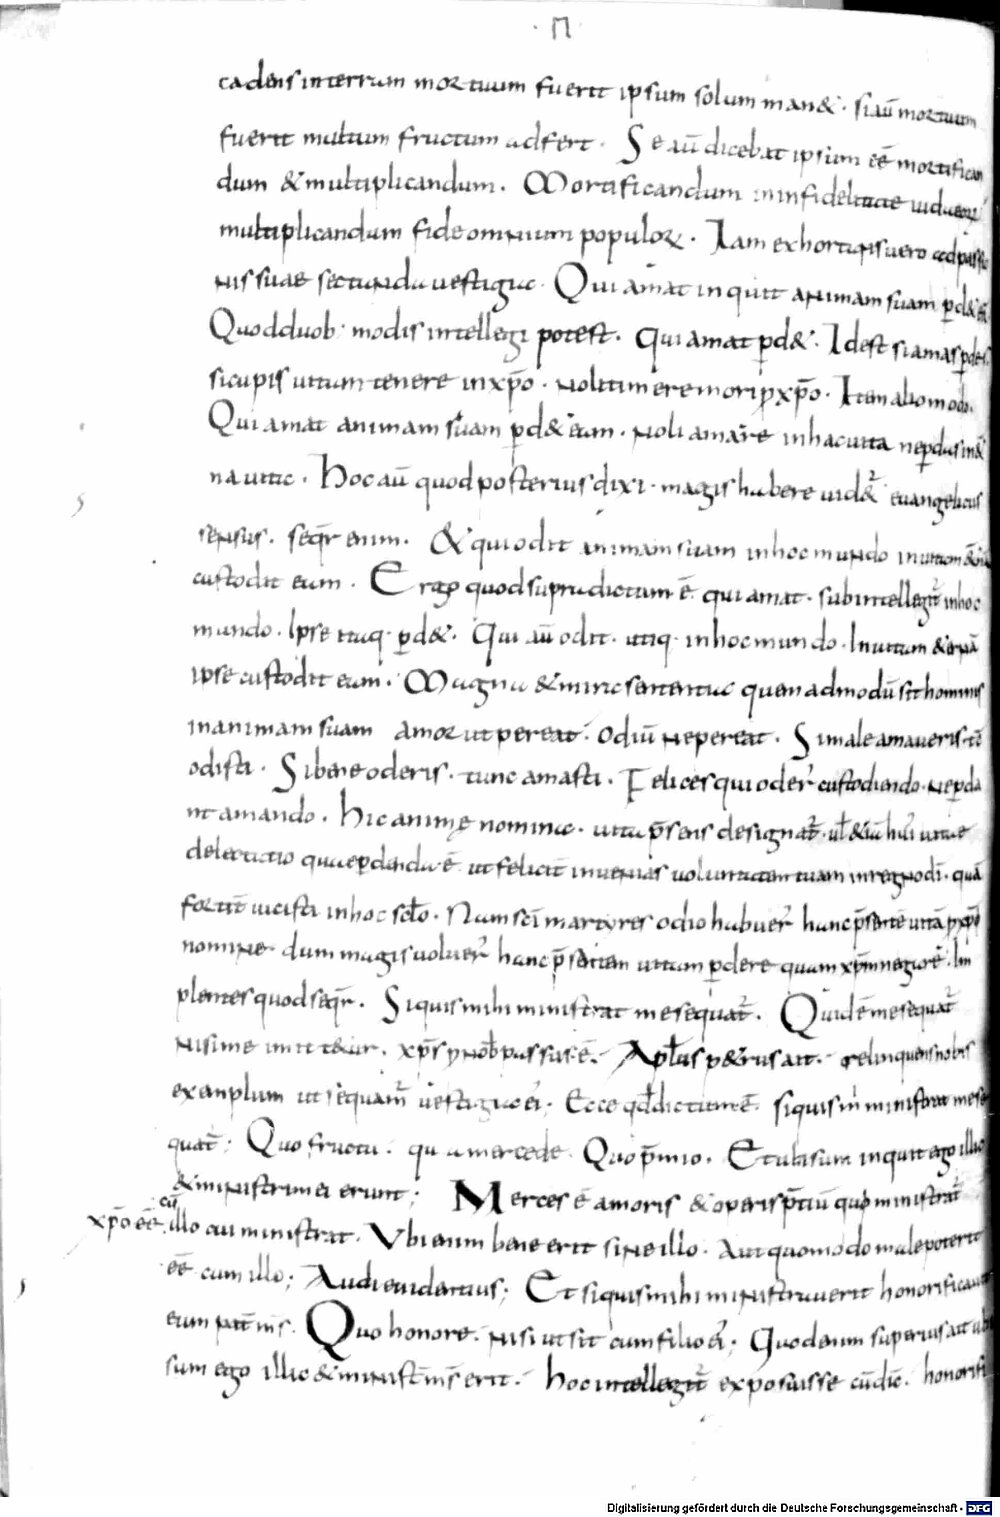 · Π
cadens in terram mortuum fuerit ipsum solum man&· si aū mortuum
fuerit multum fructum adfert· Se aū dicebat ipsum eē mortifican
dum & multiplicandum· Mortificandum in infidelitate iudaeor̄
multiplicandum fide omnium populor̄· Iam exhortans vero ad passio
nis suae sectanda vestigia· Qui amat inquit animam suam p̄d& eā
Quod duob; modis intellegi potest· Qui amat p̄d&· Id est si amas p̄des
si cupis vitam tenere in xp̄o· noli timere mori p xp̄o· Item alio modo·
Qui amat animam suam p̄d& eam· Noli amare in hac vita ne p̄das in &er
na vita· Hoc aū quod posterius dixi· magis habere vid&̄ evangelicus
sensus· seqr̄ enim· & qui odit animam suam in hoc mundo in vitam
custodit eam· Ergo quod supra dictum ē qui amat· subintellegit̄ in hoc
mundo· Ipse itaq· p̄d&· Qui aū odit· utiq· in hoc mundo· In vitam &ernā
ipse custodit eam· Magna & mira sententia quemadmodū sit hominis
in animam suam amor ut pereat· odiū ne pereat· Si male amaveris· tē
odisti· Si bene oderis· tunc amasti· Felices qui oder̄ custodiendo· ne p̄da
nt amando· Hic animę nomine· vita p̄sens designat̄· ul &iā hui vitae
delectatio quae p̄denda ē ut felicit̄ invenias voluntatem tuam in regno dī· quā
fortit̄ vicisti in hoc sclo· Num scī martyres odio habuer̄ hanc p̄sentē vitā p xp̄o
nomine· dum magis voluer̄ hanc p̄sentem vitam p̄dere quam xp̄m negare· Im
plentes quod seqr̄· Si quis mihi ministrat me sequat̄· Quid ē me sequat̄
nisi me imit&ur· xp̄s p nob passus ē· Aplus p&rus ait· relinquens nobis
exemplum ut sequam̄ vestigia ei; Ecce qd dictum ē· si quis m̄ ministrat me se
quat̄; Quo fructu· qua mercede· Quo p̄mio· Et ubi sum inquit ego illic
& minister m̄ erunt; Merces ē amoris & operis p̄tiū quo ministrat̄
cū
xp̄o eē· illo cui ministrat· Ubi enim bene erit sine illo· Aut quomodo male poterit
eē cum illo; Audi evidentius; Et si quis mihi ministraverit honorificavit
eum pat̄ m̄s· Quo honore· nisi ut sit cum filio ei; Quod enim superius ait ubi
sum ego illic & minist̄ m̄s erit· hoc intellegit̄ exposuisse cū dic̄· honorifi
Digitalisierung gefördert durch die Deutsche Forschungsgemeinschaft - DFG